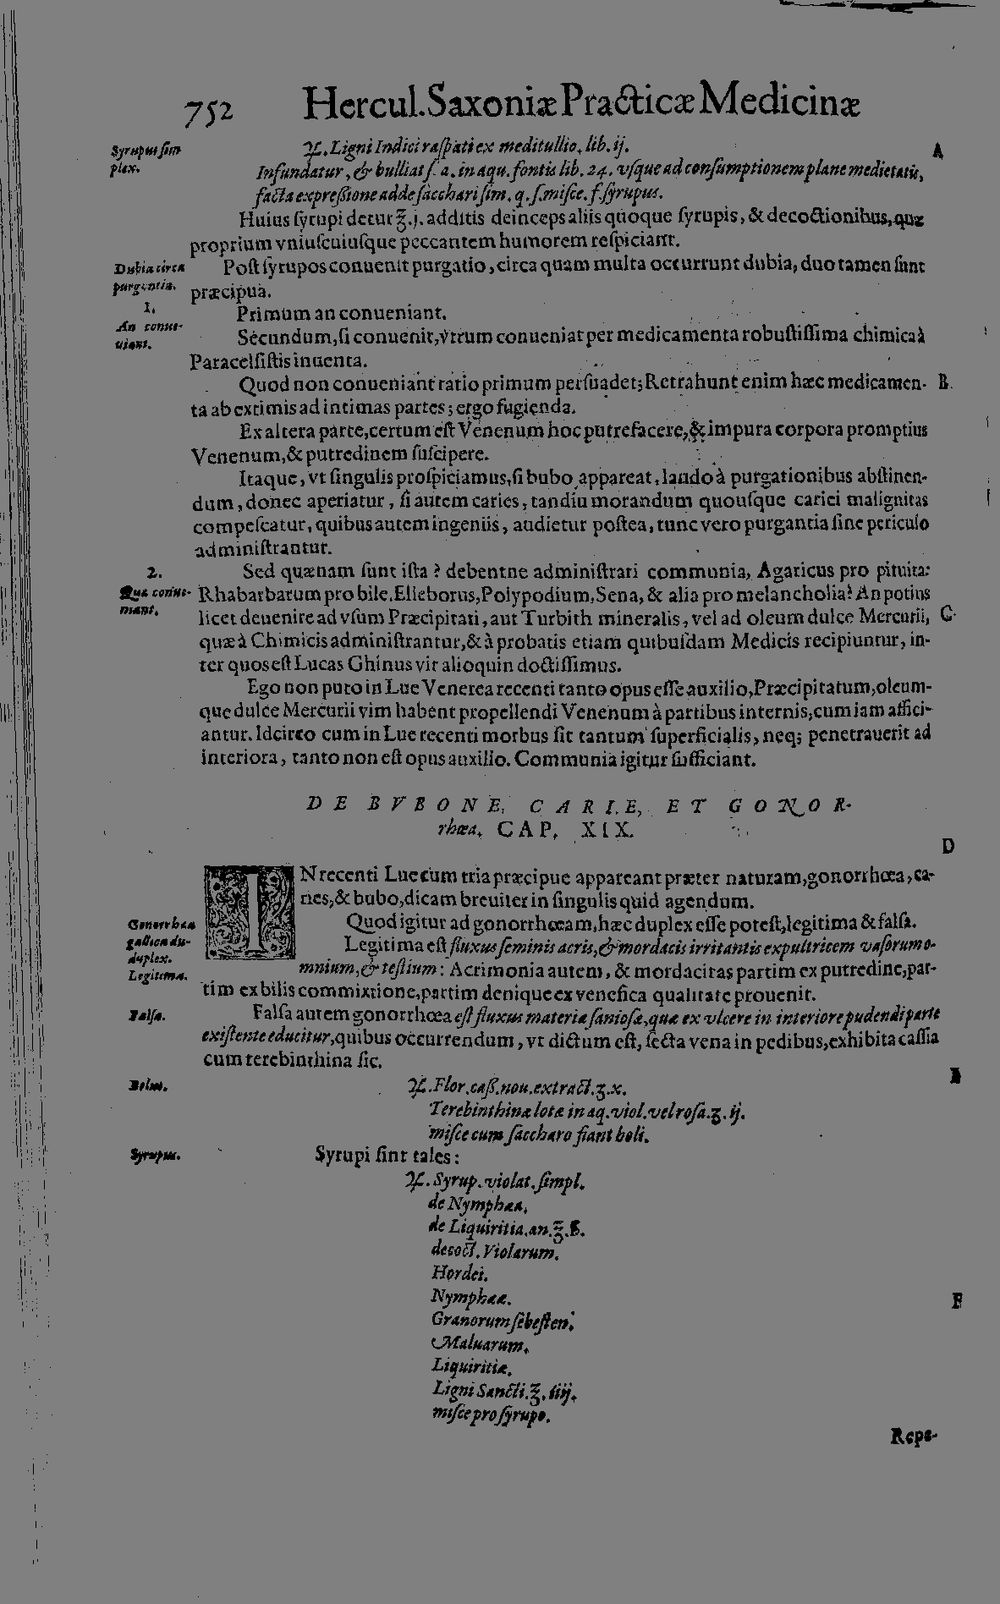 752 Hercul. Saxoniæ Practicæ Medicinæ
Syrupus sim
plex.
℞. Ligni Indici raspati ex meditullio. lib. ij.
A
Infundatur, & bulliat s. a. in aqu. fontis lib. 24. vsque ad consumptionem plane medietatis,
facta expressione adde sacchari sim. q. s. misce. f. syrupus.
Huius syrupi detur ℥. j. additis deinceps aliis quoque syrupis, & decoctionibus, quæ
proprium vniuscuiusque peccantem humorem respiciant.
Dubia circa
purgentia.
Post syrupos conuenit purgatio, circa quam multa occurrunt dubia, duo tamen sunt
præcipua.
1.
An conue-
niant.
Primum an conueniant.
Secundum, si conuenit, vtrum conueniat per medicamenta robustissima chimica à
Paracelsistis inuenta.
Quod non conueniant ratio primum persuadet; Retrahunt enim hæc medicamen-
B.
ta ab extimis ad intimas partes; ergo fugienda.
Ex altera parte, certum est Venenum hoc putrefacere, & impura corpora promptius
Venenum, & putredinem suscipere.
Itaque, vt singulis prospiciamus, si bubo appareat, laudo à purgationibus abstinen-
dum, donec aperiatur, si autem caries, tandiu morandum quousque cariei malignitas
compescatur, quibus autem ingeniis, audietur postea, tunc vero purgantia sine periculo
administrantur.
2.
Quæ conue-
niant.
Sed quænam sunt ista? debentne administrari communia, Agaricus pro pituita:
Rhabarbarum pro bile, Elleborus, Polypodium, Sena, & alia pro melancholia? An potius
licet deuenire ad vsum Præcipitati, aut Turbith mineralis, vel ad oleum dulce Mercurii,
C
quæ à Chimicis administrantur, & à probatis etiam quibusdam Medicis recipiuntur, in-
ter quos est Lucas Ghinus vir alioquin doctissimus.
Ego non puto in Lue Venerea recenti tanto opus esse auxilio, Præcipitatum, oleum-
que dulce Mercurii vim habent propellendi Venenum à partibus internis, cum iam affici-
antur. Idcirco cum in Lue recenti morbus sit tantum superficialis, neq; penetrauerit ad
interiora, tanto non est opus auxilio. Communia igitur sufficiant.
DE BVBONE, CARIE, ET GONOR-
rhœa. CAP. XIX.
D
IN recenti Lue cum tria præcipue appareant præter naturam, gonorrhœa, ca-
ries, & bubo, dicam breuiter in singulis quid agendum.
Gonorrhæa
gallica du-
duplex.
Legitima.
Quod igitur ad gonorrhœam, hæc duplex esse potest, legitima & falsa.
Legitima est fluxus seminis acris, & mordacis irritantis expultricem vasorum o-
mnium, & testium: Acrimonia autem, & mordacitas partim ex putredine, par-
tim ex bilis commixtione, partim denique ex venefica qualitate prouenit.
Falsa.
Falsa autem gonorrhœa est fluxus materiæ saniosæ, quæ ex vlcere in interiore pudendi parte
existente educitur, quibus occurrendum, vt dictum est, secta vena in pedibus, exhibita cassia
cum terebinthina sic.
Bolus.
℞. Flor. cass. nou. extract. ʒ. x.
E
Terebinthinæ lotæ in aq. viol. vel rosa. ʒ. ij.
misce cum saccharo fiant boli.
Syrupus.
Syrupi sint tales:
℞. Syrup. violat. simpl.
de Nymphæa,
de Liquiritia. an. ℥. ß.
decoct. Violarum.
Hordei.
Nymphææ.
F
Granorum sebesten.
Maluarum.
Liquiritiæ.
Ligni Sancti. ℥. iiij.
misce pro syrupo.
Repe-